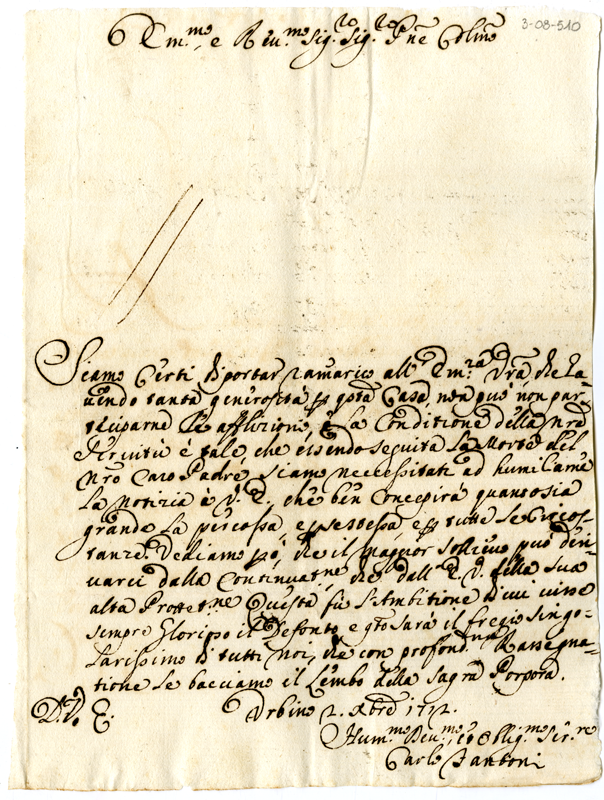 3-08-510
Em.mo e Reu.mo Sig.re Sig.re Pne Colmo
Siamo Certi di portar ramarico all' Em.za Vra, che ha-
uendo tanta generosità p qsta Casa non può non par-
teciparne le afflizioni, e la Conditione della nra
Seruitù è tale, che essendo seguita la Morte del
nro Caro Padre, siamo necessitati ad humiliarne
la notizia à V. E. che ben concepirà quanto sia
grande la percossa e p se stessa, e p tutte le circos-
tanze. Vediamo però, che il maggior sollieuo può deri-
uarci dalla Continuat.ne che dall' E. V. della sua
alta Protett.ne Questa fù l'Ambitione di cui uisse
sempre Glorioso il Defonto, e qto sarà il fregio singo-
larissimo di tutti noi, che con profond.ma Rassegna-
tione le bacciamo il Lembo della Sagra Porpora.
D. V. E. Vrbino 2. Xbre 1712.
Hum.mo Deu.mo, et Oblig.mo Ser.re
Carlo